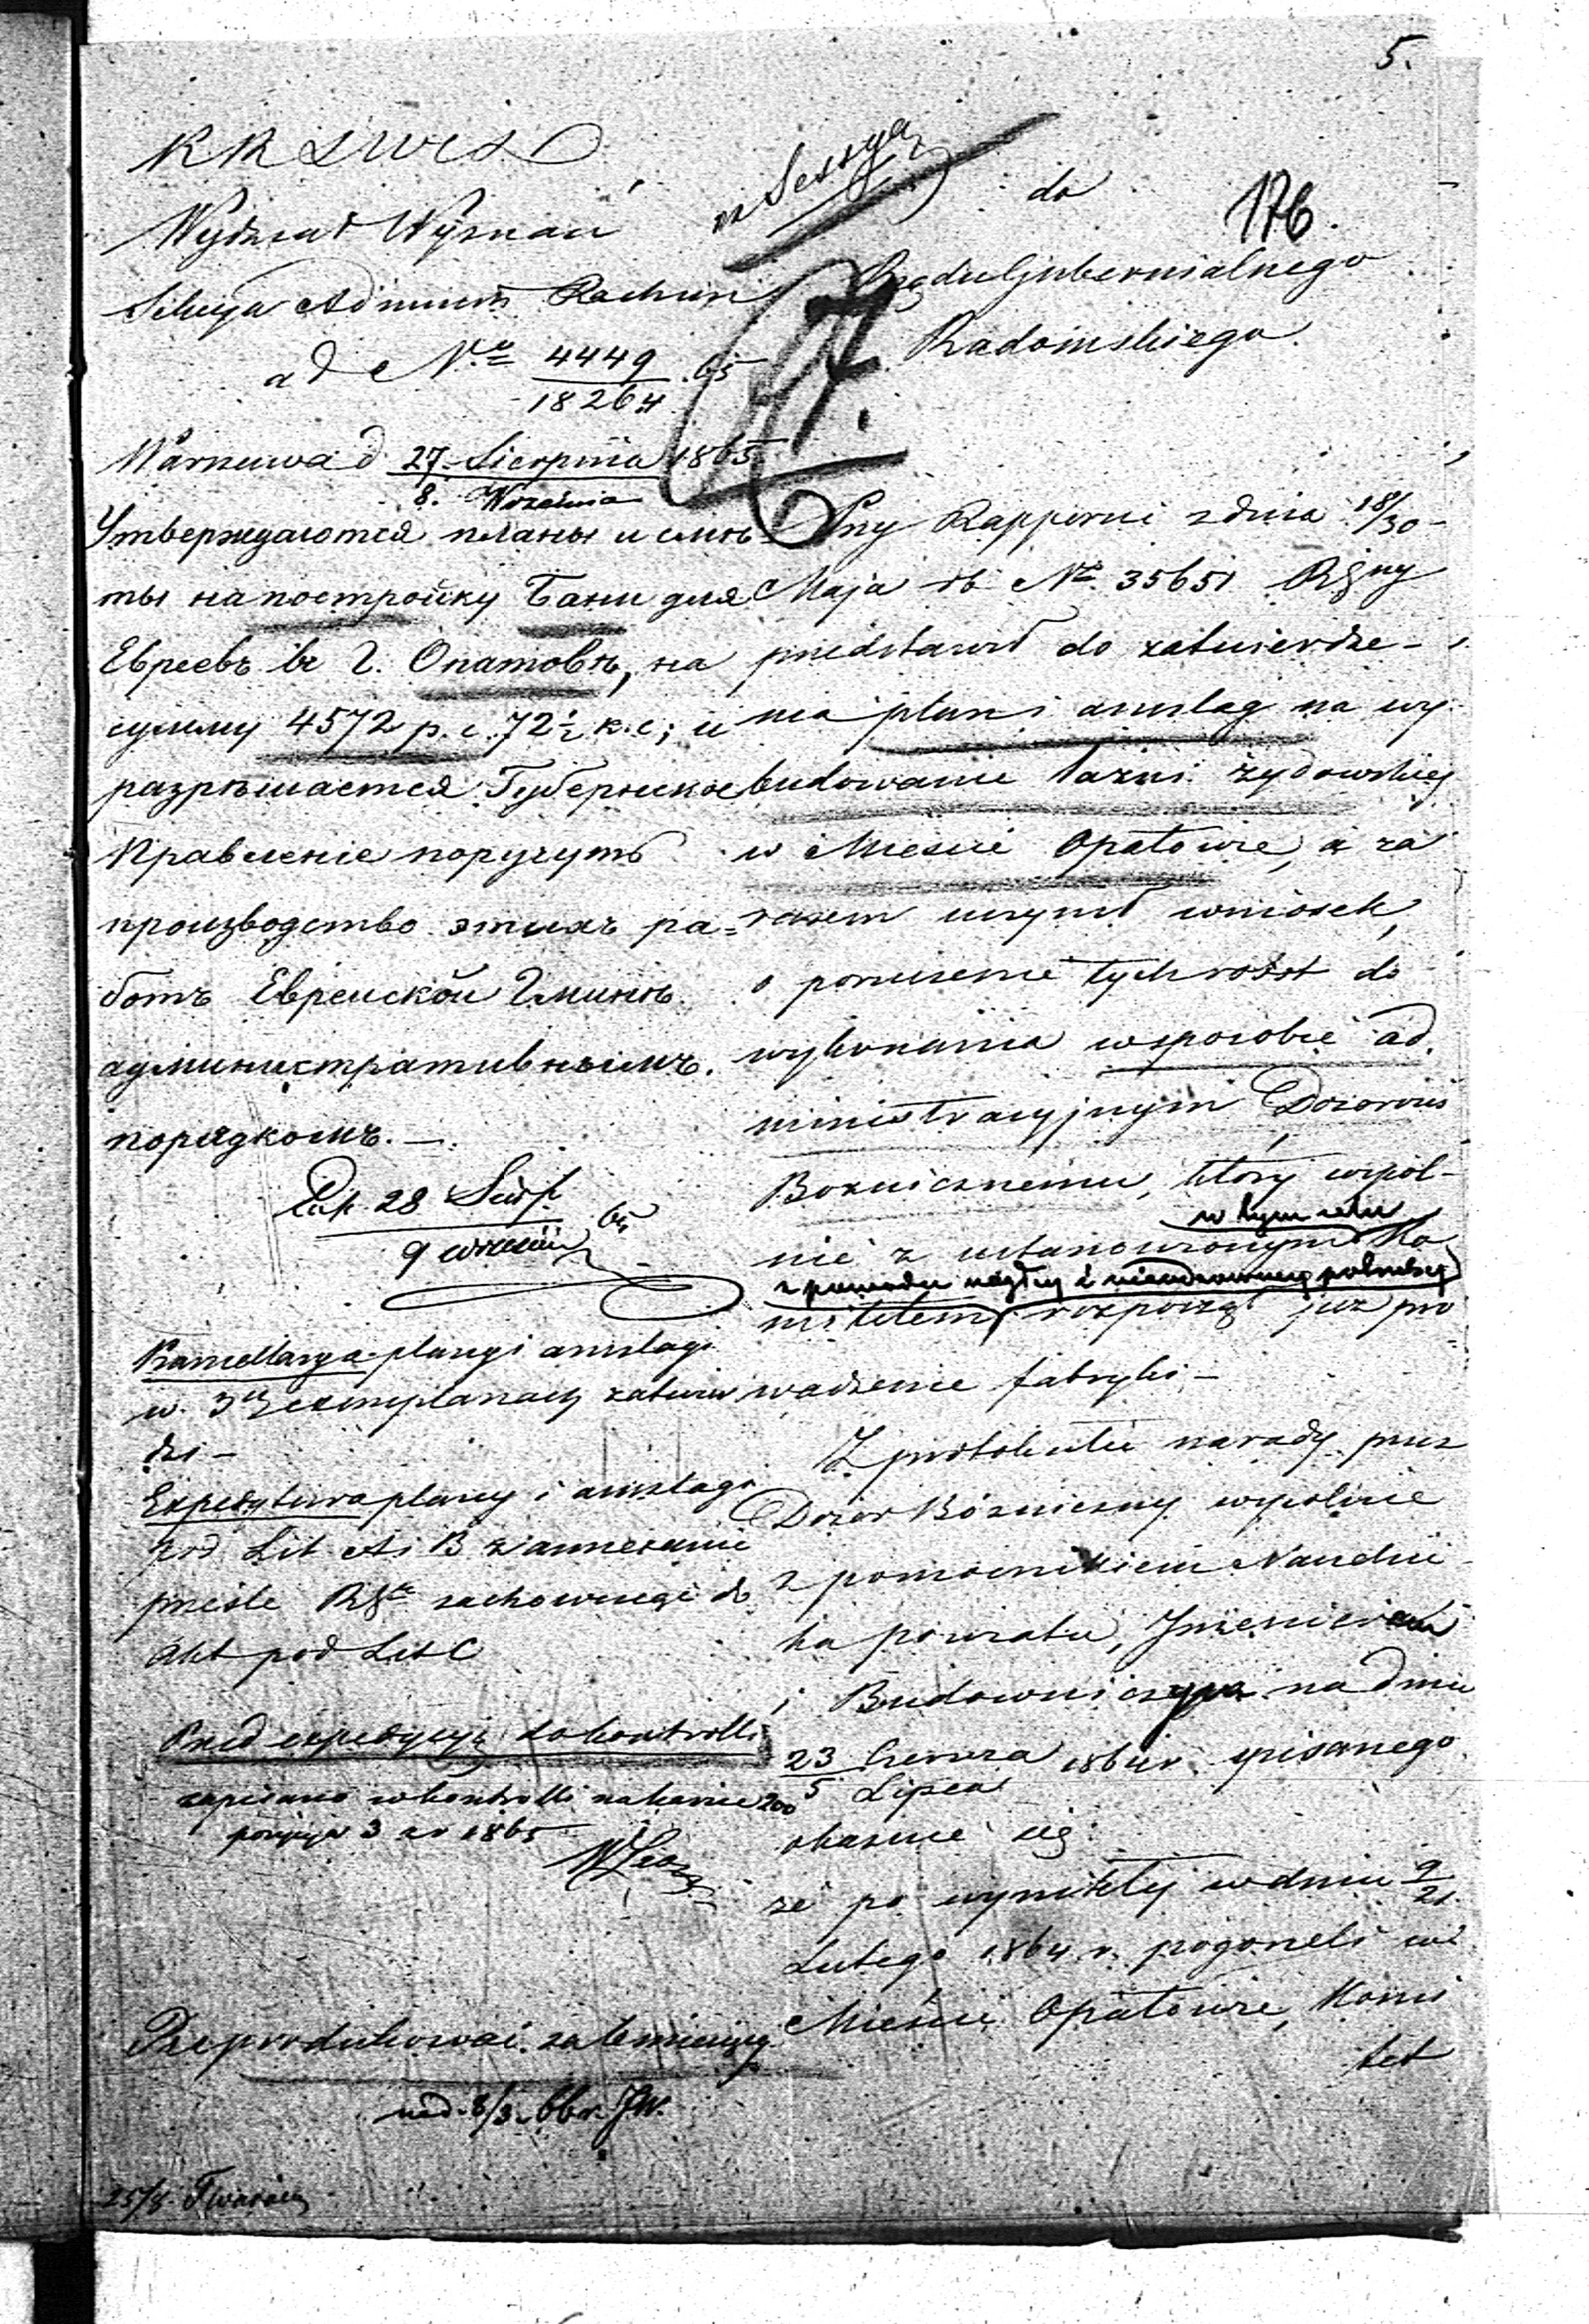 5.
K R S W i D
Wydział Wyznań
Sekcya Administ Rachun
ad No 4449/18264 65
Warszawa d 27 Sierpnia 1865
8. Września
na Sessyą
do
176.
Rządu Gubernialnego
Radomskiego.
Утверждаются планы и смѣ-
ты на постройку Бани для
Евреевъ въ Г. Опатовѣ, на
сумму 4572 р. с. 72½ к. с; и
разрѣшается Губернское
Правленіе поручить
производство этихъ ра=
ботъ Еврейской Гминѣ
административнымъ
порядкомъ. —
Exp. 28 Sierp. 65
9 wrześni
Kancellarya plany i anszlagi
w 3ch exemplarzach zatwier
dzi —
Expedytura plany i anszlagi
pod Lit A i B z annexami
prześle zachowując do
Akt pod Lit C
Przed expedycyją do kontrolli
zapisano w kontrolli na karcie 200
pozycya 3 1865
Reprodukować za 6 miesięcy
25/8
Przy Rapporcie z dnia 18/30
Maja rb No 35651 Rząd
przedstawił do zatwierdze-
nia plan i anszlag na wy-
budowanie łazni żydowskiej
w Mieście Opatowie, a za
razem uczynił wniosek,
o poruczenie tych robót do
wykonania w sposobie ad
ministracyjnym Dozorowi
Bożniczemu, który wspól-
w tym celu
nie z ustanowionym Ko
z powodu nagłej i nieodzownej potrzeby
mitetem rozpoczął już pro
wadzenie fabryki —
Z protokułu narady przez
Dozór Bóżniczny wspólnie
z pomocnikiem Naczelni
ka powiatu, Inżenierem
i Budowniczym na dniu
23 Czerwca 1864 r. spisanego
5 Lipca
okazuje się:
że po wynikłej w dniu 9/21
Lutego 1864 r. pogorzeli w
Mieście Opatowie, Komi
tet